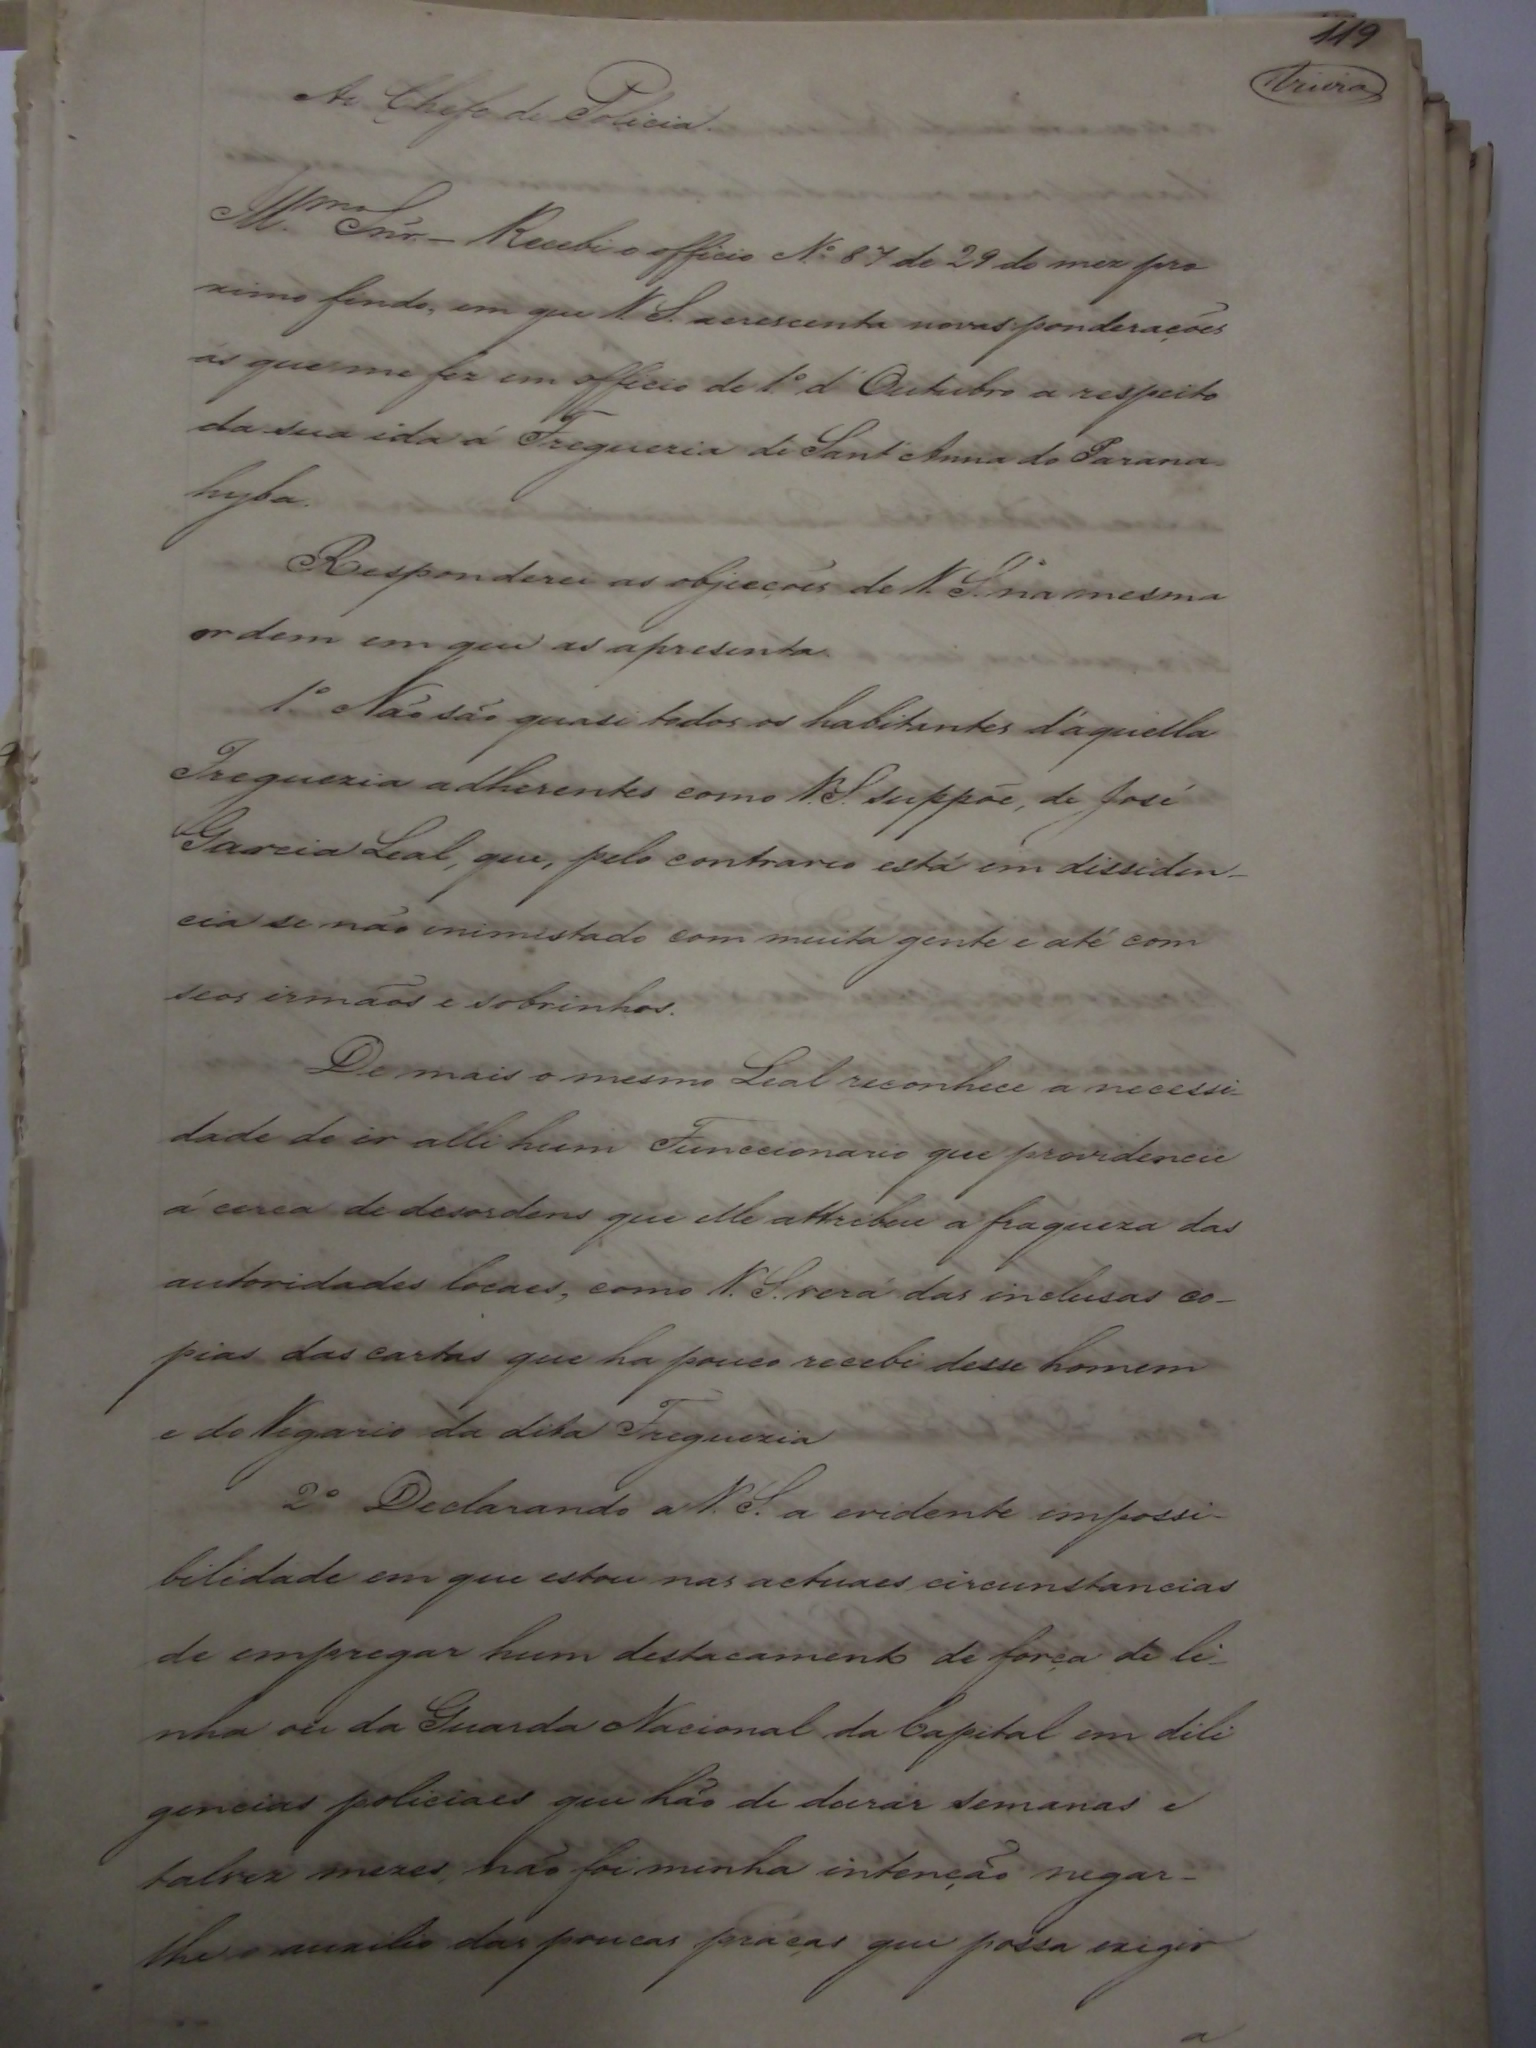 119
Vieira
Ao Chefe de Policia.
Illmo Snr. – Recebi o officio No. 87 de 29 do mez pro
ximo findo, em que V. S. acrescenta novas ponderações
ás que me fez em officio de 1.º d'Outubro a respeito
da sua ida á Freguezia de Sant'Anna do Parana
hyba.
Responderei as objecções de V. S.ª na mesma
ordem em que as apresenta.
1.º Não são quasi todos os habitantes d'aquella
Freguezia adherentes como V. S. suppõe, de José
Garcia Leal, que, pelo contrario está em dissiden-
cia se não inimistado com muita gente e até com
seos irmãos e sobrinhos.
De mais o mesmo Leal reconhece a necessi-
dade de ir alli hum Funccionario que providencie
á cerca de desordens que elle attribue a fraqueza das
autoridades locaes, como V. S. verá das inclusas co-
pias das cartas que ha pouco recebi desse homem
e do Vigario da dita Freguezia
2.º Declarando a V. S. a evidente impossi-
bilidade em que estou nas actuaes circunstancias
de empregar hum destacamento de força de li-
nha ou da Guarda Nacional da Capital em dili
gencias policiaes que hão de durar semanas e
talvez mezes, não foi minha intenção negar-
lhe o auxilio das poucas praças que possa exigir
a